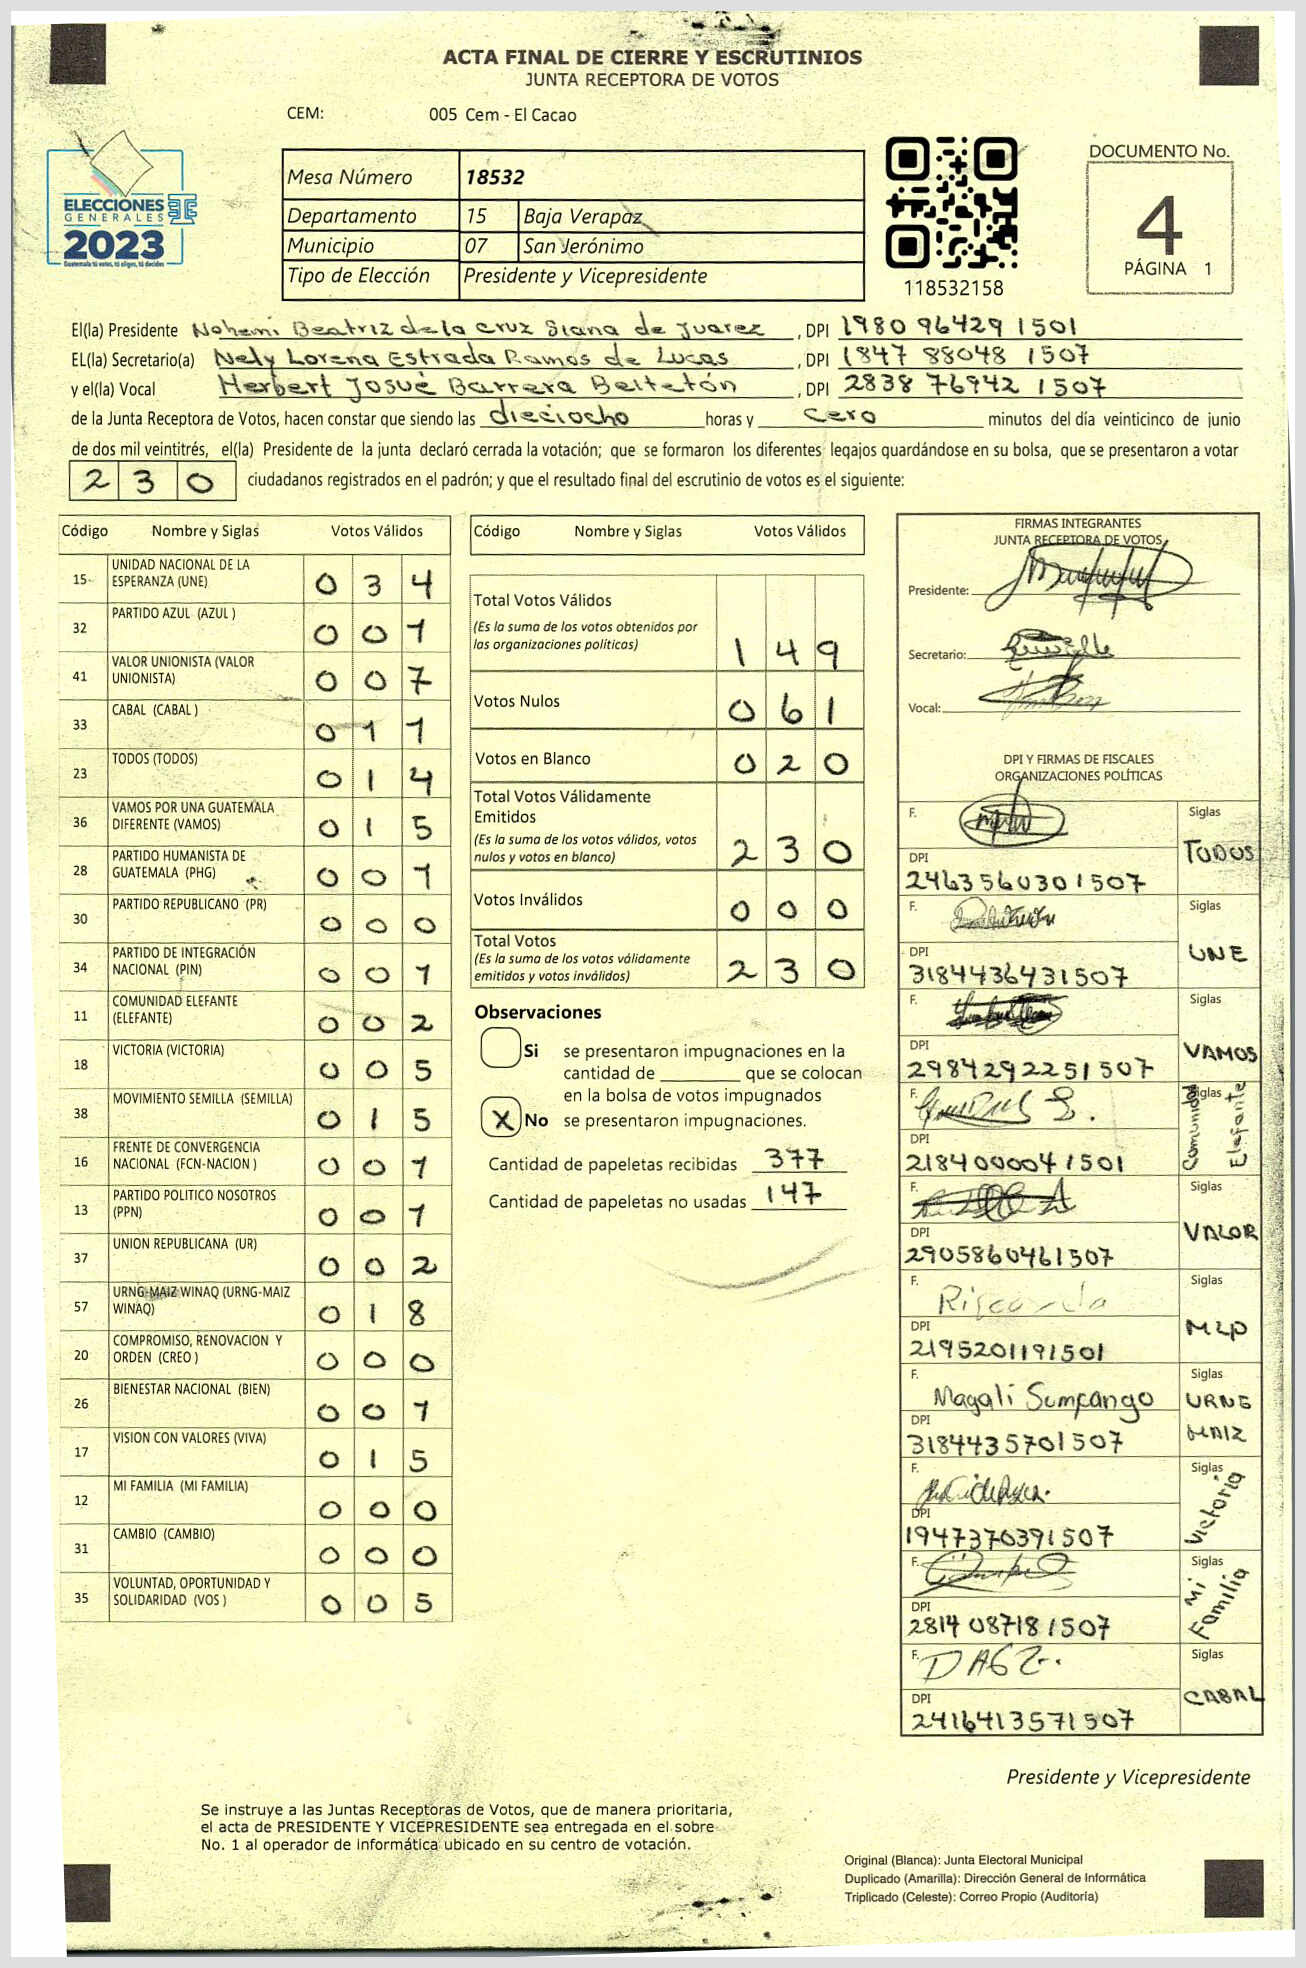 ACTA FINAL DE CIERRE Y ESCRUTINIOS
JUNTA RECEPTORA DE VOTOS
CEM: 005 Cem - El Cacao
ELECCIONES
GENERALES
2023
Guatemala tú votas, tú eliges, tú decides
Mesa Número 18532
Departamento 15 Baja Verapaz
Municipio 07 San Jerónimo
Tipo de Elección Presidente y Vicepresidente
118532158
DOCUMENTO No.
4
PÁGINA 1
El(la) Presidente Nohemi Beatriz de la Cruz Siana de Juarez , DPI 1980 96429 1501
EL(la) Secretario(a) Nely Lorena Estrada Ramos de Lucas , DPI 1847 88048 1507
y el(la) Vocal Herbert Josué Barrera Beltetón , DPI 2838 76942 1507
de la Junta Receptora de Votos, hacen constar que siendo las dieciocho horas y cero minutos del día veinticinco de junio
de dos mil veintitrés, el(la) Presidente de la junta declaró cerrada la votación; que se formaron los diferentes legajos guardándose en su bolsa, que se presentaron a votar
230 ciudadanos registrados en el padrón; y que el resultado final del escrutinio de votos es el siguiente:
Código Nombre y Siglas Votos Válidos
15 UNIDAD NACIONAL DE LA ESPERANZA (UNE) 034
32 PARTIDO AZUL (AZUL ) 001
41 VALOR UNIONISTA (VALOR UNIONISTA) 007
33 CABAL (CABAL ) 011
23 TODOS (TODOS) 014
36 VAMOS POR UNA GUATEMALA DIFERENTE (VAMOS) 015
28 PARTIDO HUMANISTA DE GUATEMALA (PHG) 001
30 PARTIDO REPUBLICANO (PR) 000
34 PARTIDO DE INTEGRACIÓN NACIONAL (PIN) 001
11 COMUNIDAD ELEFANTE (ELEFANTE) 002
18 VICTORIA (VICTORIA) 005
38 MOVIMIENTO SEMILLA (SEMILLA) 015
16 FRENTE DE CONVERGENCIA NACIONAL (FCN-NACION ) 001
13 PARTIDO POLITICO NOSOTROS (PPN) 001
37 UNION REPUBLICANA (UR) 002
57 URNG-MAIZ WINAQ (URNG-MAIZ WINAQ) 018
20 COMPROMISO, RENOVACION Y ORDEN (CREO ) 000
26 BIENESTAR NACIONAL (BIEN) 001
17 VISION CON VALORES (VIVA) 015
12 MI FAMILIA (MI FAMILIA) 000
31 CAMBIO (CAMBIO) 000
35 VOLUNTAD, OPORTUNIDAD Y SOLIDARIDAD (VOS ) 005
Código Nombre y Siglas Votos Válidos
Total Votos Válidos
(Es la suma de los votos obtenidos por
las organizaciones políticas) 149
Votos Nulos 061
Votos en Blanco 020
Total Votos Válidamente
Emitidos
(Es la suma de los votos válidos, votos
nulos y votos en blanco) 230
Votos Inválidos 000
Total Votos
(Es la suma de los votos válidamente
emitidos y votos inválidos) 230
Observaciones
Si se presentaron impugnaciones en la
cantidad de ________ que se colocan
en la bolsa de votos impugnados
X No se presentaron impugnaciones.
Cantidad de papeletas recibidas 377
Cantidad de papeletas no usadas 147
FIRMAS INTEGRANTES
JUNTA RECEPTORA DE VOTOS
Presidente:
Secretario:
Vocal:
DPI Y FIRMAS DE FISCALES
ORGANIZACIONES POLÍTICAS
F. Siglas
TODOS
DPI
2463560301507
F. Siglas
UNE
DPI
3184436431507
F. Siglas
VAMOS
DPI
2984292251507
F. Siglas
Comunidad Elefante
DPI
2184000041501
F. Siglas
VALOR
DPI
2905860461507
F. Siglas
MLP
DPI
2195201191501
F. Magali Sumpango Siglas
URNG
MAIZ
DPI
3184435701507
F. Siglas
Victoria
DPI
1947370391507
F. Siglas
Mi Familia
DPI
2814 087181507
F. Siglas
CABAL
DPI
2416413571507
Presidente y Vicepresidente
Se instruye a las Juntas Receptoras de Votos, que de manera prioritaria,
el acta de PRESIDENTE Y VICEPRESIDENTE sea entregada en el sobre
No. 1 al operador de informática ubicado en su centro de votación.
Original (Blanca): Junta Electoral Municipal
Duplicado (Amarilla): Dirección General de Informática
Triplicado (Celeste): Correo Propio (Auditoría)